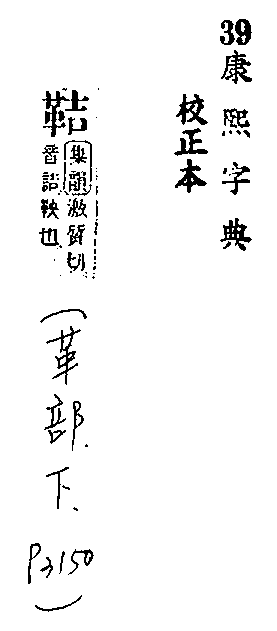 39康熙字典
校正本
鞊
集韻激質切
音詰鞅也
(革部.
下.
P3150)